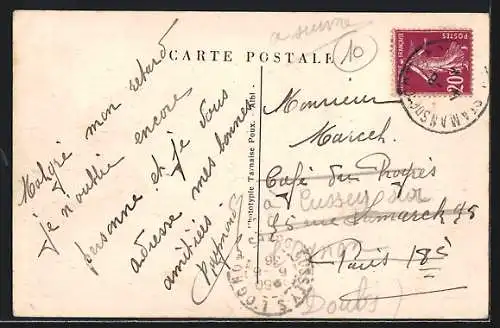 à suivre
10
CARTE POSTALE
20c
Malgré mon retard
je n'oublie encore
personne et je vous
adresse mes bonnes
amitiés.
Phototypie Tarnaise Poux. - Albi -
Monsieur
March
Café du Progrès
Cussey s/
rue Lamarck 75
Paris 18e
(Doubs)